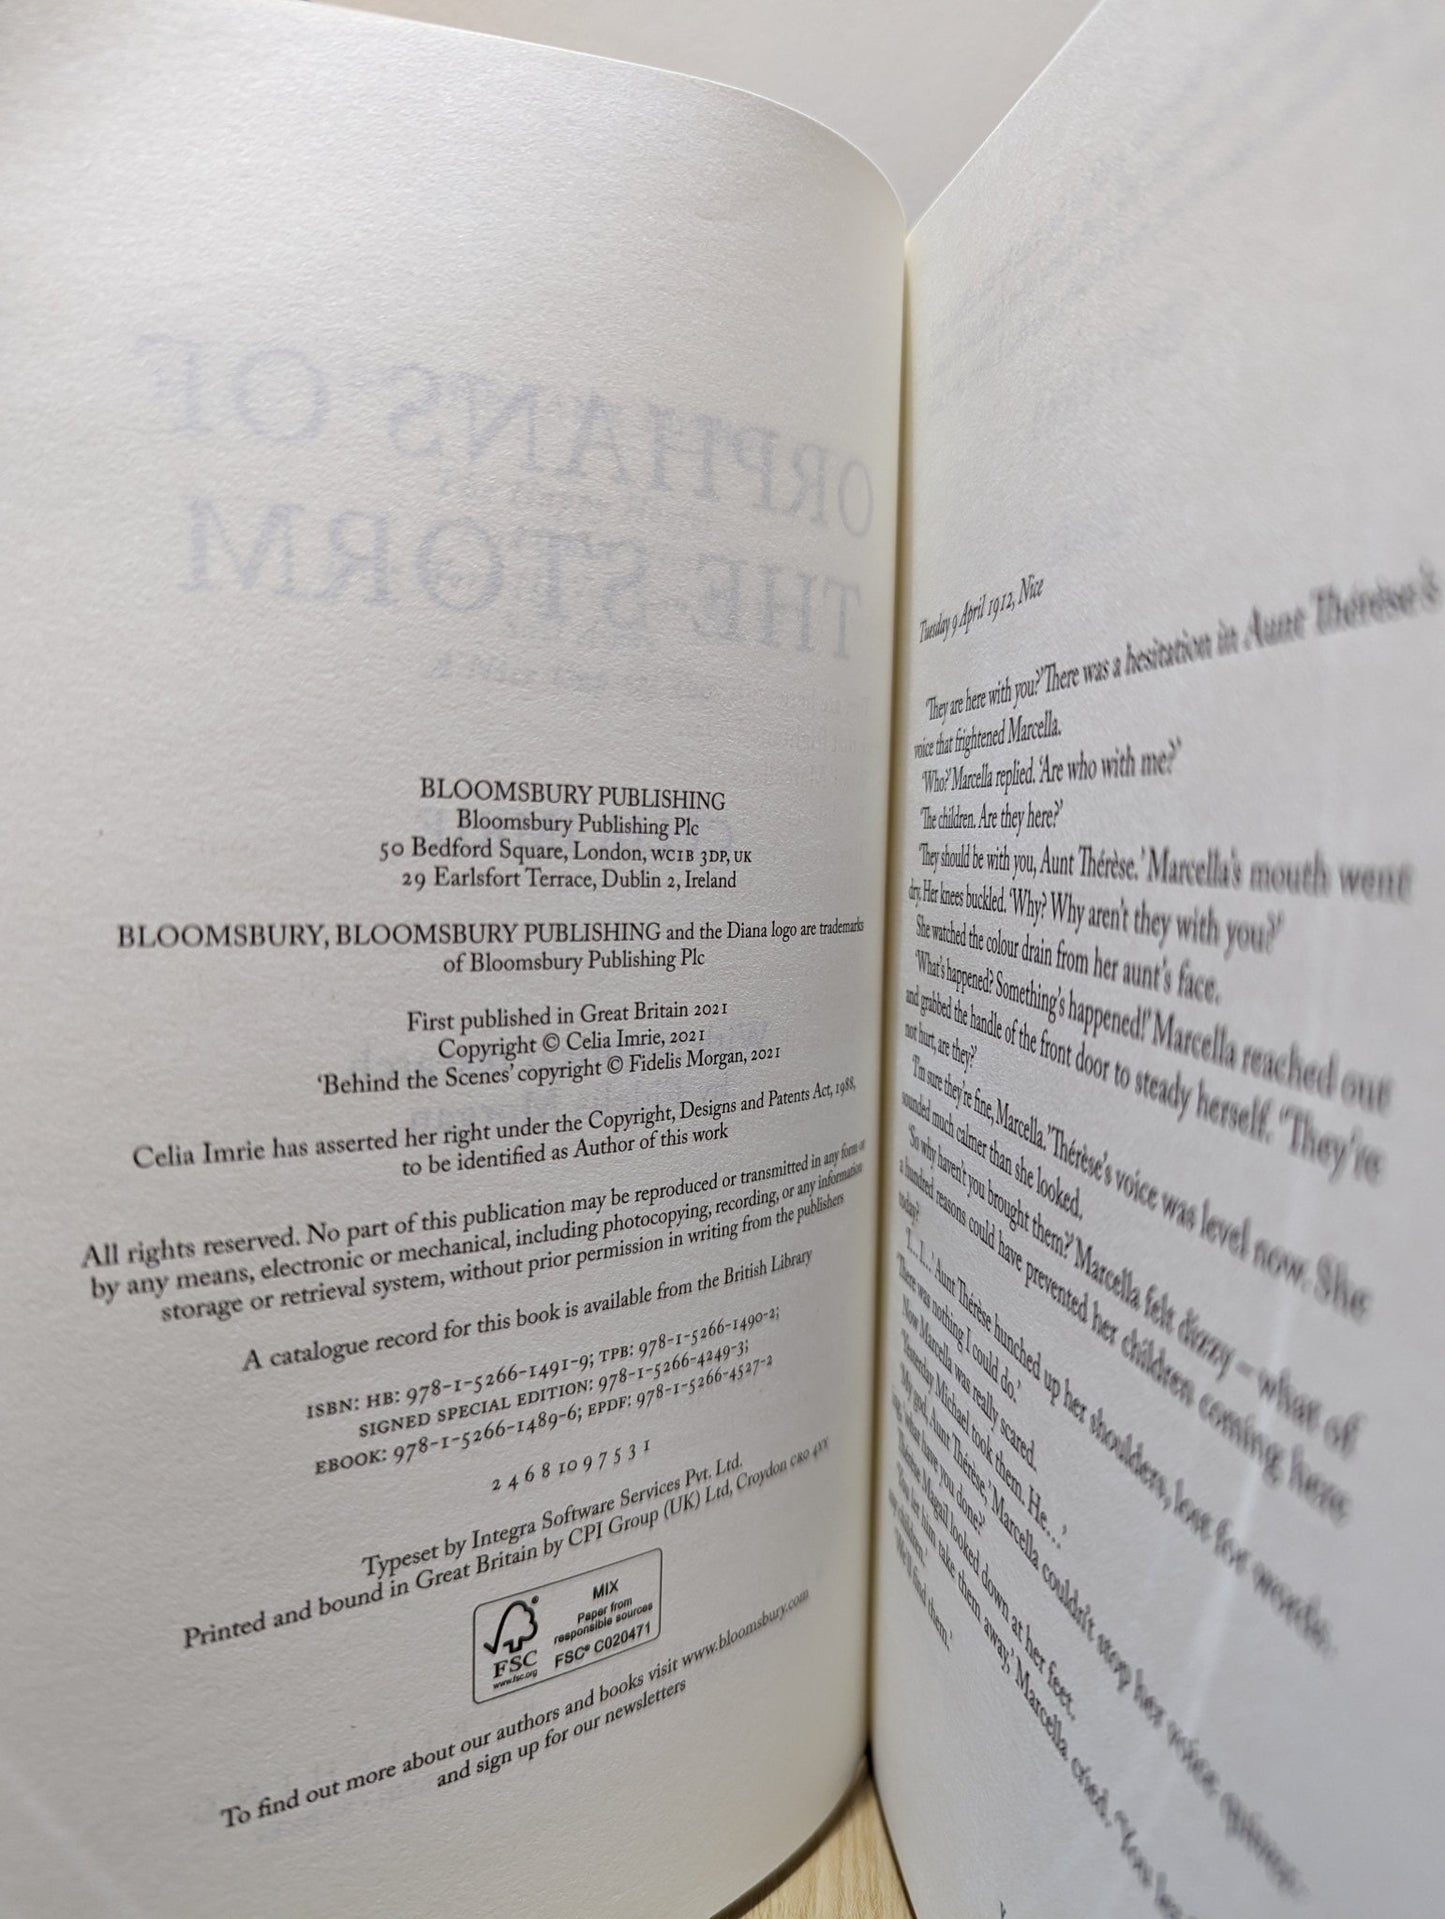 ORPHANS OF
THE STORM
BLOOMSBURY PUBLISHING
Bloomsbury Publishing Plc
50 Bedford Square, London, WC1B 3DP, UK
29 Earlsfort Terrace, Dublin 2, Ireland
BLOOMSBURY, BLOOMSBURY PUBLISHING and the Diana logo are trademarks
of Bloomsbury Publishing Plc
First published in Great Britain 2021
Copyright © Celia Imrie, 2021
‘Behind the Scenes’ copyright © Fidelis Morgan, 2021
Celia Imrie has asserted her right under the Copyright, Designs and Patents Act, 1988,
to be identified as Author of this work
All rights reserved. No part of this publication may be reproduced or transmitted in any form or
by any means, electronic or mechanical, including photocopying, recording, or any information
storage or retrieval system, without prior permission in writing from the publishers
A catalogue record for this book is available from the British Library
ISBN: HB: 978-1-5266-1491-9; TPB: 978-1-5266-1490-2;
SIGNED SPECIAL EDITION: 978-1-5266-4249-3;
EBOOK: 978-1-5266-1489-6; EPDF: 978-1-5266-4527-2
2 4 6 8 10 9 7 5 3 1
Typeset by Integra Software Services Pvt. Ltd.
Printed and bound in Great Britain by CPI Group (UK) Ltd, Croydon CR0 4YY
FSC
www.fsc.org
MIX
Paper from
responsible sources
FSC® C020471
To find out more about our authors and books visit www.bloomsbury.com
and sign up for our newsletters
Tuesday 9 April 1912, Nice
‘They are here with you?’ There was a hesitation in Aunt Thérèse’s
voice that frightened Marcella.
‘Who?’ Marcella replied. ‘Are who with me?’
‘The children. Are they here?’
‘They should be with you, Aunt Thérèse.’ Marcella’s mouth went
dry. Her knees buckled. ‘Why? Why aren’t they with you?’
She watched the colour drain from her aunt’s face.
‘What’s happened? Something’s happened!’ Marcella reached out
and grabbed the handle of the front door to steady herself. ‘They’re
not hurt, are they?’
‘I’m sure they’re fine, Marcella.’ Thérèse’s voice was level now. She
sounded much calmer than she looked.
‘So why haven’t you brought them?’ Marcella felt dizzy – what of
a hundred reasons could have prevented her children coming here
today?
‘I... I...’ Aunt Thérèse hunched up her shoulders, lost for words.
‘There was nothing I could do.’
Now Marcella was really scared.
‘Yesterday Michael took them. He...’
‘My god, Aunt Thérèse,’ Marcella couldn’t stop her voice
‘what have you done?’
Thérèse Magail looked down at her feet.
‘You let him take them away,’ Marcella cried. ‘You
my children.’
‘We’ll find them.’